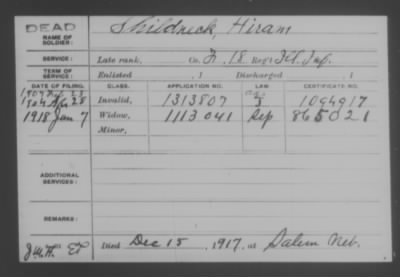 DEAD
NAME OF SOLDIER: Shildneck, Hiram
SERVICE: Late rank, Co. F, 18 Reg't Ill. Inf.
TERM OF SERVICE: Enlisted , 1 Discharged , 1
DATE OF FILING. CLASS. APPLICATION NO. LAW. CERTIFICATE NO.
1904 Invalid, 1313807 1094917
1918 Jan 7 Widow, 1113041 Sep 865021
Minor,
ADDITIONAL SERVICES:
REMARKS:
Died Dec 15, 1917, at Salem Neb.